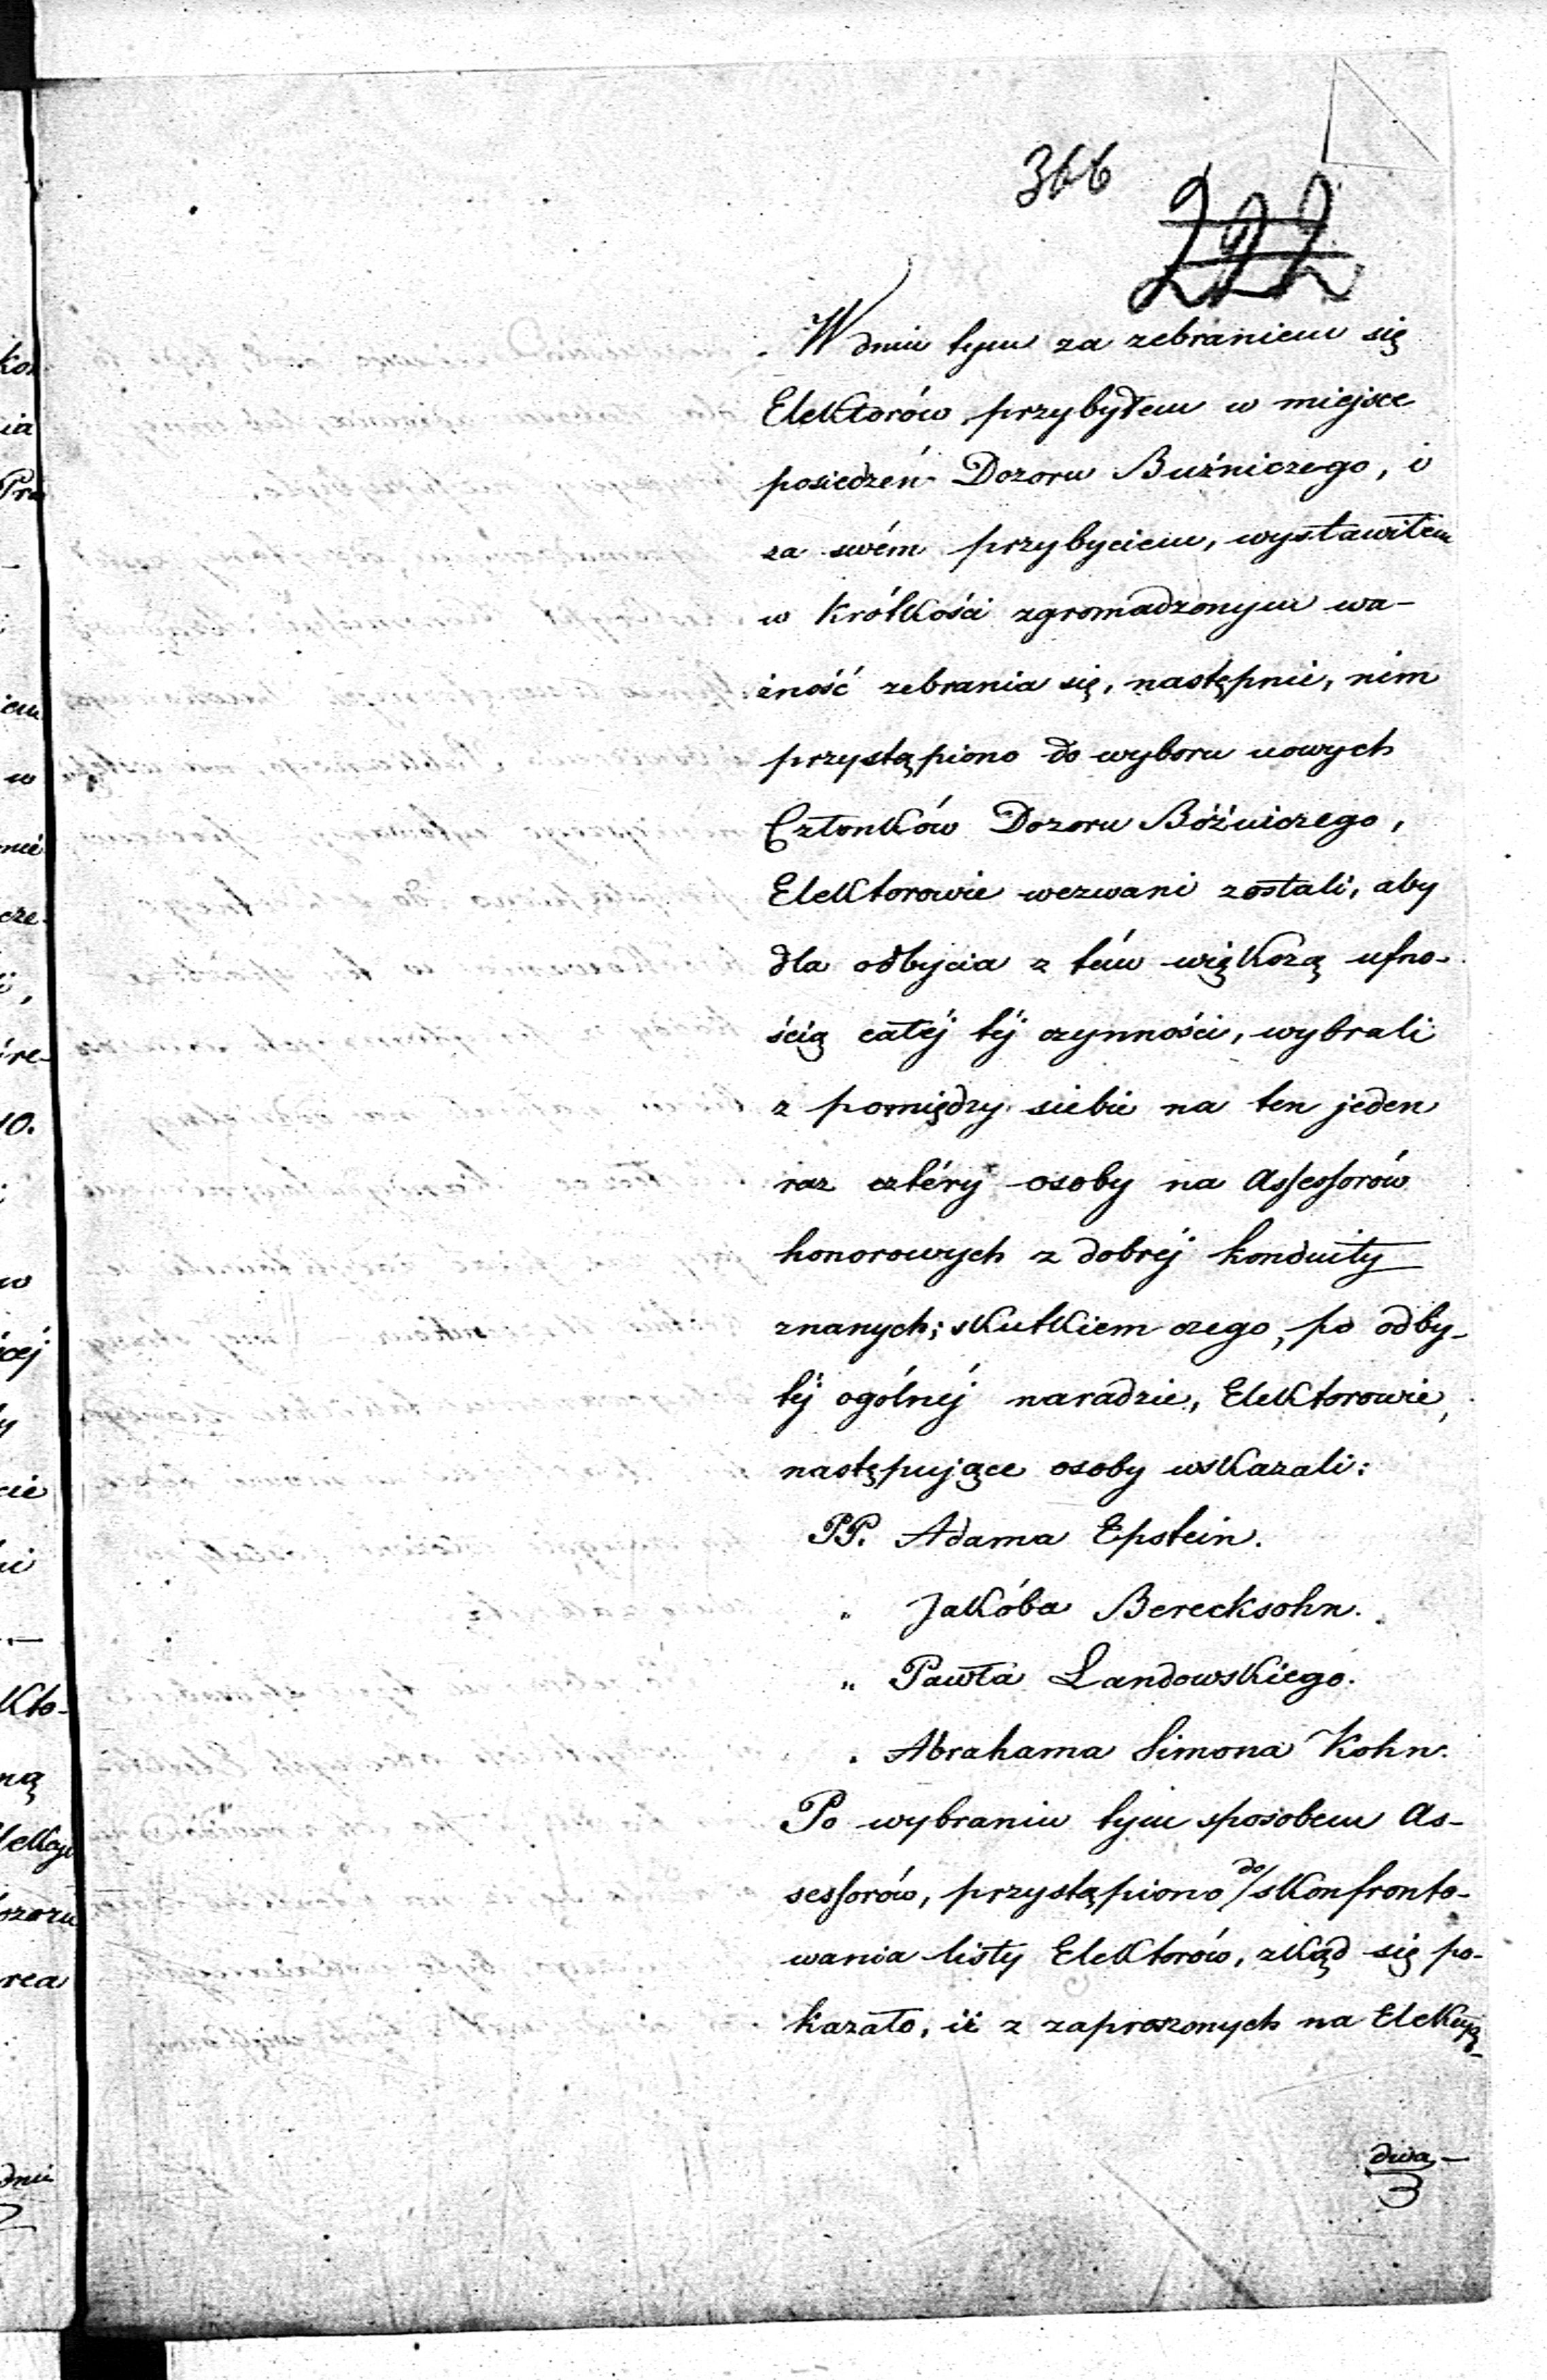 366
222
W dniu tym za zebraniem się
Elektorów przybyłem w miejsce
posiedzeń Dozoru Buźniczego, i
za swém przybyciem, wystawiłem
w krótkości zgromadzonym wa-
żność zebrania się, następnie, nim
przystąpiono do wyboru nowych
Członków Dozoru Bóźniczego,
Elektorowie wezwani zostali, aby
dla odbycia z tém większą ufno-
ścią całéj téj czynności, wybrali
z pomiędzy siebie na ten jeden
raz cztéry osoby na Assessorów
honorowych z dobréj konduity
znanych; skutkiem czego, po odby-
téj ogólnéj naradzie, Elektorowie,
następujące osoby wskazali:
PP. Adama Epstein.
" Jakóba Berecksohn.
" Pawła Landowskiego.
" Abrahama Simona Kohn.
Po wybraniu tym sposobem As-
sessorów, przystąpiono do skonfronto-
wania listy Elektorów, zkąd się po-
kazało, iż z zaproszonych na Elekcyą
dwa-